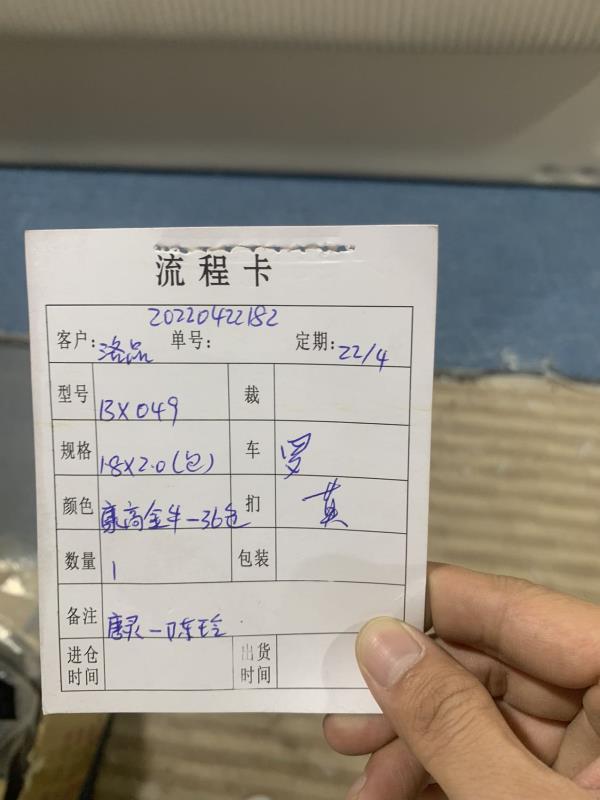 流程卡
20220422182
客户：洛品 单号： 定期：22/4
型号 BX049 裁
规格 1.8X2.0(包) 车 罗
颜色 康高金牛-36色 扪 黄
数量 1 包装
备注 唐灵-陈玲
进仓时间 出货时间